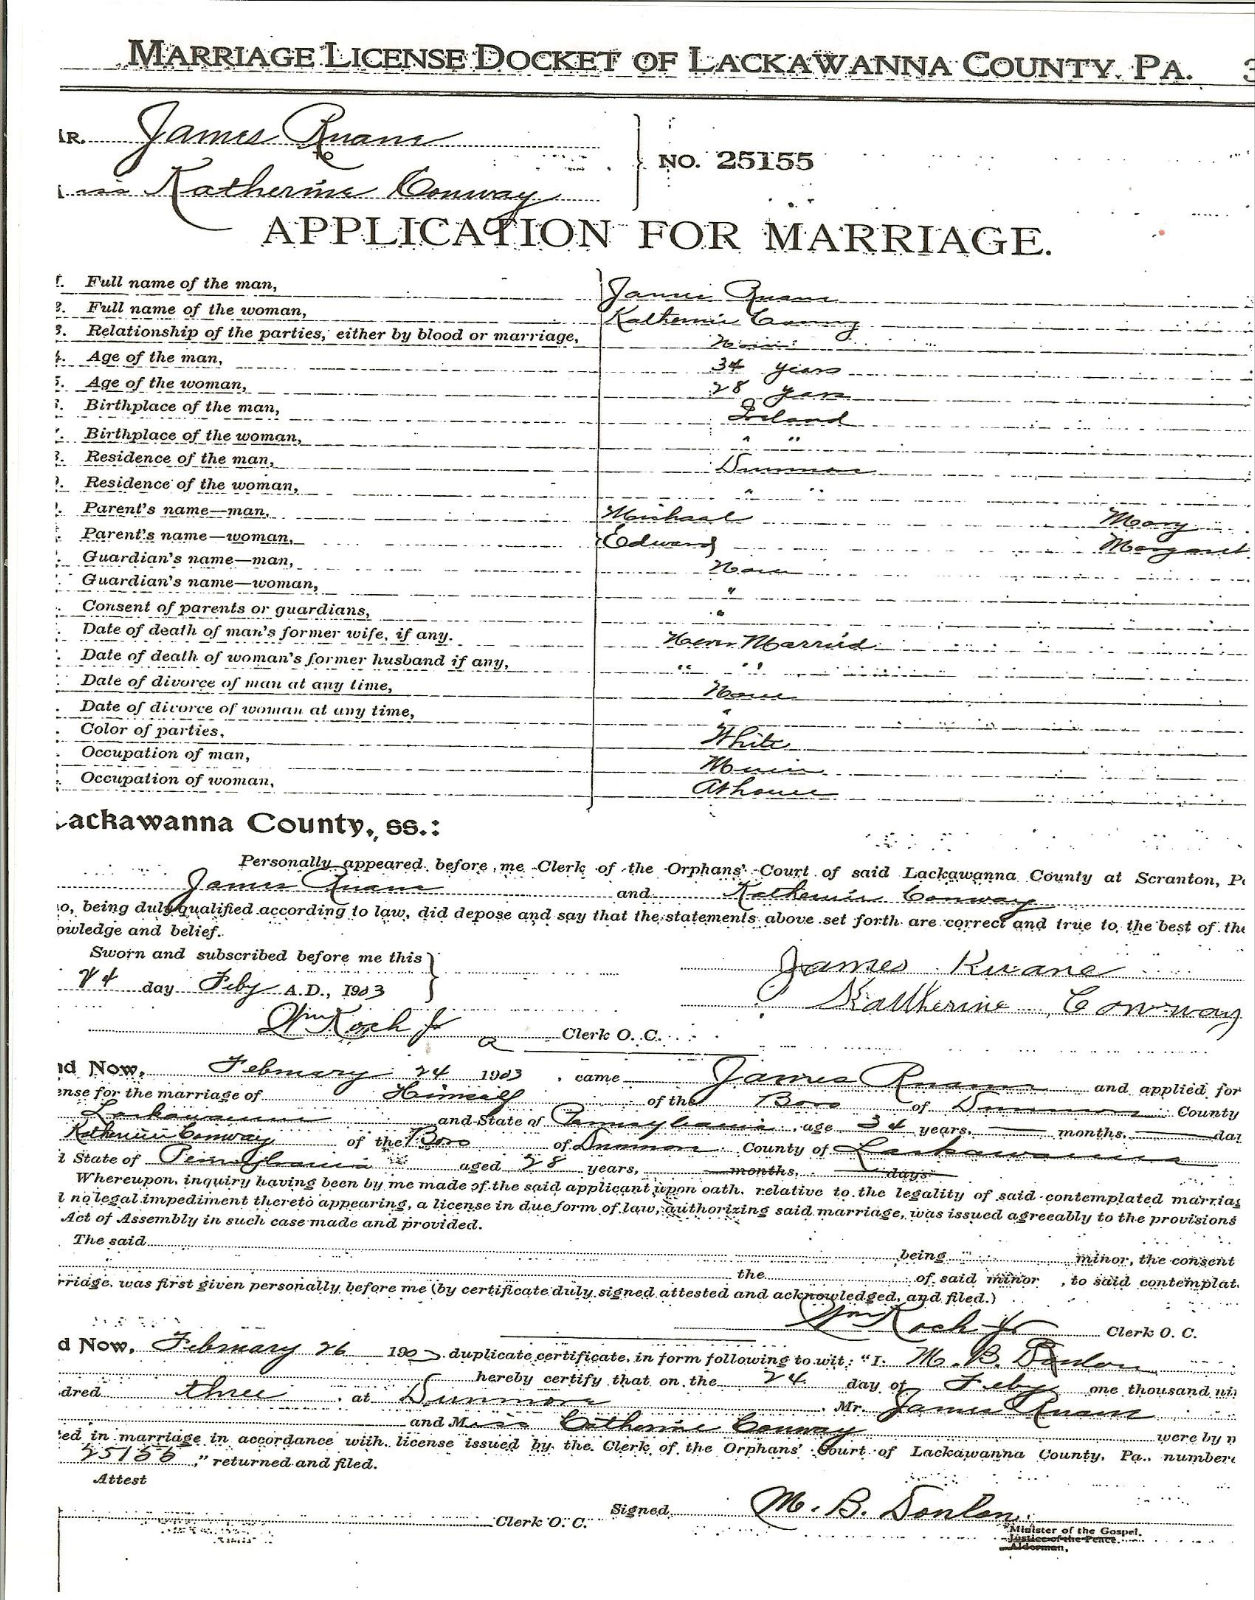 MARRIAGE LICENSE DOCKET OF LACKAWANNA COUNTY, PA. 3
R. James Ruane
to
Katherine Conway
NO. 25155
APPLICATION FOR MARRIAGE.
Full name of the man, James Ruane
Full name of the woman, Katherine Conway
Relationship of the parties, either by blood or marriage, None
Age of the man, 34 years
Age of the woman, 28 years
Birthplace of the man, Ireland
Birthplace of the woman, " "
Residence of the man, Dunmore
Residence of the woman, " "
Parent's name—man, Michael Mary
Parent's name—woman, Edward Margaret
Guardian's name—man, None
Guardian's name—woman, "
Consent of parents or guardians, "
Date of death of man's former wife, if any. Never Married
Date of death of woman's former husband if any, " "
Date of divorce of man at any time, None
Date of divorce of woman at any time, "
Color of parties, White
Occupation of man, Miner
Occupation of woman, At home
Lackawanna County, ss.:
Personally appeared before me Clerk of the Orphans' Court of said Lackawanna County at Scranton, P
James Ruane and Katherine Conway
o, being duly qualified according to law, did depose and say that the statements above set forth are correct and true to the best of the
owledge and belief.
Sworn and subscribed before me this
24 day Feby A.D., 1903
James Ruane
Katherine Conway
Wm Koch Jr Clerk O. C.
d Now, February 24 1903, came James Ruane and applied for
ense for the marriage of Himself of the Boro of Dunmore County
Lackawanna and State of Pennsylvania, age 34 years, — months, — day
Katherine Conway of the Boro of Dunmore County of Lackawanna
State of Pennsylvania aged 28 years, months, days
Whereupon, inquiry having been by me made of the said applicant upon oath, relative to the legality of said contemplated marriag
no legal impediment thereto appearing, a license in due form of law, authorizing said marriage, was issued agreeably to the provisions
Act of Assembly in such case made and provided.
The said being minor, the consent
the of said minor, to said contemplat
rriage was first given personally before me (by certificate duly signed attested and acknowledged, and filed.)
Wm Koch Jr Clerk O. C.
d Now, February 26 1903 duplicate certificate, in form following to wit: "I. M. B. Donlon
hereby certify that on the 24 day of Feby one thousand ni
dred three, at Dunmore, Mr. James Ruane
and Miss Catherine Conway were by
ed in marriage in accordance with license issued by the Clerk of the Orphans' Court of Lackawanna County, Pa., number
25155," returned and filed.
Attest
Signed, M. B. Donlon.
Clerk O. C.
Minister of the Gospel.
Justice of the Peace.
Alderman.